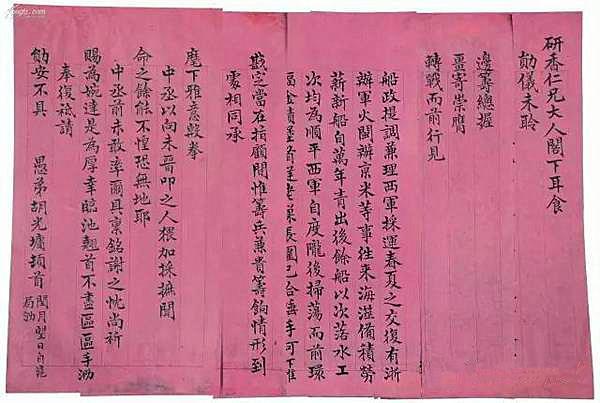 研香仁兄大人閣下耳食
勛儀未聆
邊籌總握
畺寄崇膺
轉戰而前行見
船政提調兼理西軍採運春夏之交復有浙
辦軍火閩辦京米等事往來海澨備積勞
薪新船自萬年青出後餘船以次落水工
次均為順平西軍自度隴後掃蕩而前環
金積堡逆老巢長圍已合垂手可下惟
戡定當在指顧間惟籌兵兼貴籌餉情形到
處相同承
麾下雅意殷拳
中丞以尚未晉叩之人猥加採摭聞
命之餘能不惶恐無地耶
中丞前未敢率爾具稟銘謝之忱尚祈
賜為婉達是為厚幸臨池翹首不盡區區手泐
奉復祗請
勛安不具 愚弟胡光墉頓首 閏月望日自滬
局泐